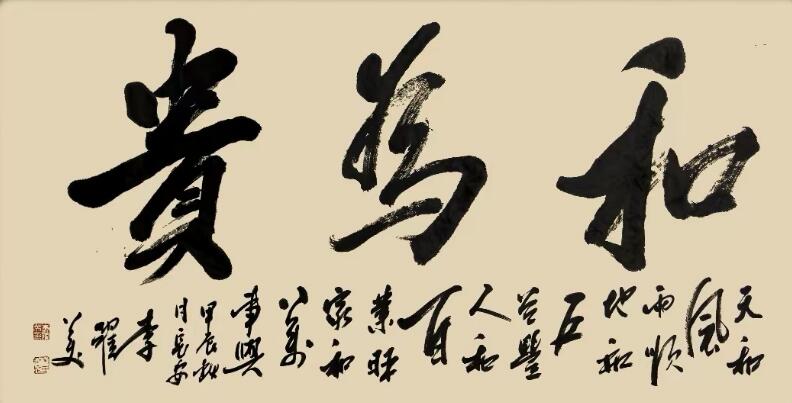 和為貴
天和
風
雨順
地和
五
谷豐
人和
百
業旺
家和
萬
事興
甲辰秋
月長安
李
美